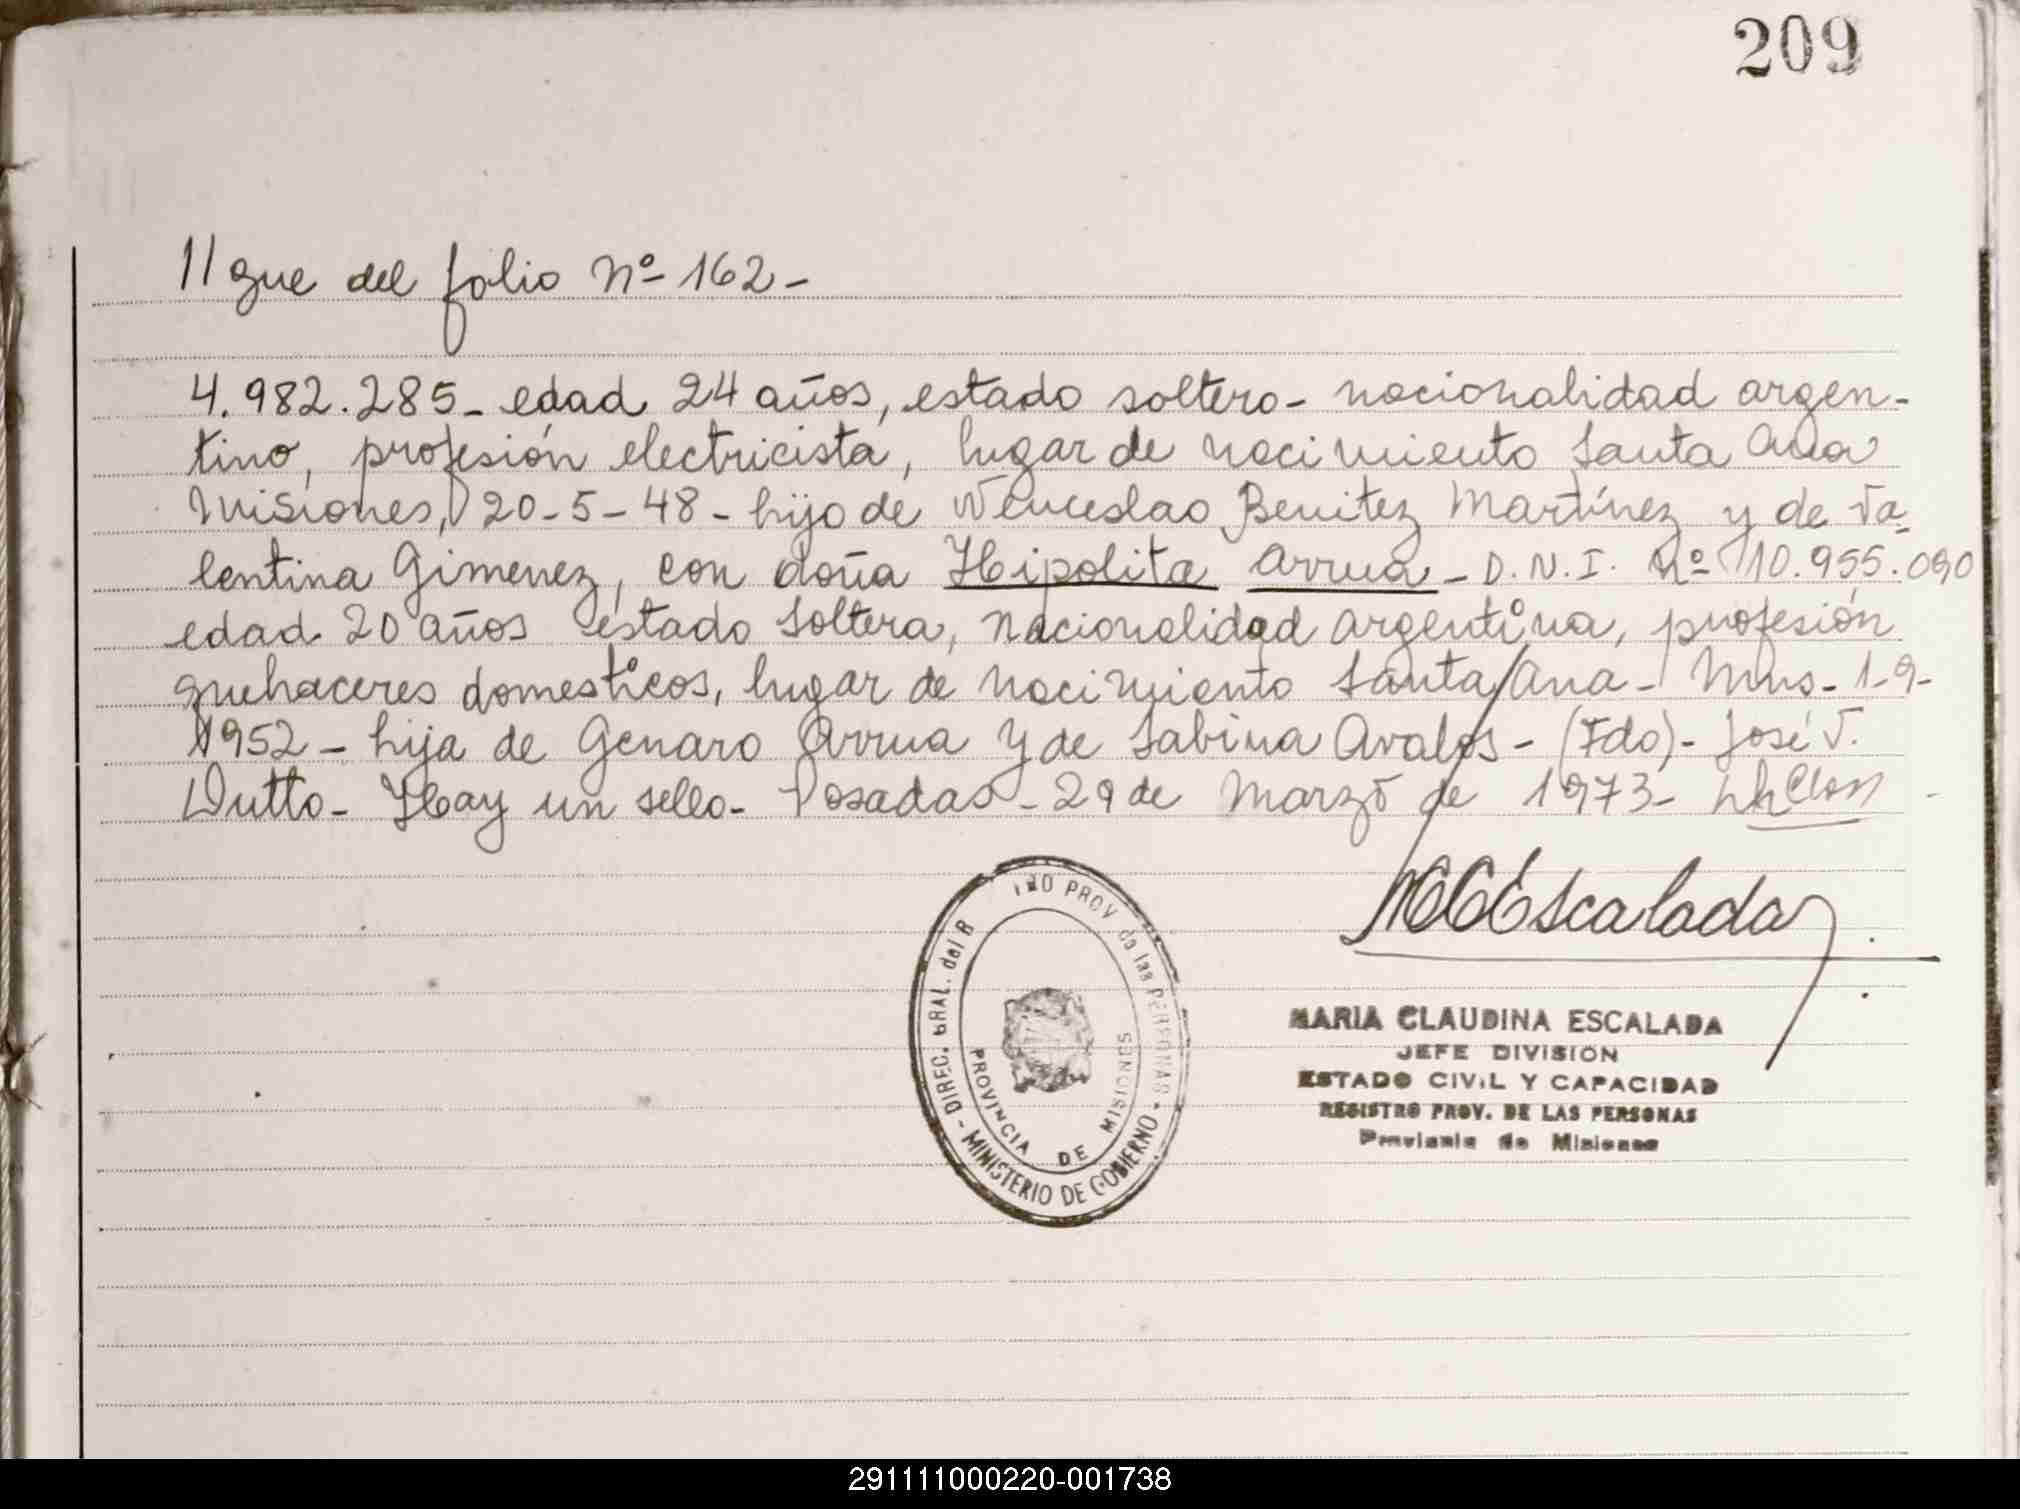 209
//gue del folio Nº 162-
4.982.285- edad 24 años, estado soltero- nacionalidad argen-
tino, profesión electricista, lugar de nacimiento Santa Ana
Misiones, 20-5-48- hijo de Wenceslao Benitez Martínez y de Va-
lentina Gimenez, con doña Hipolita Arrua- D.N.I. Nº 10.955.090
edad 20 años estado soltera, nacionalidad argentina, profesión
quehaceres domesticos, lugar de nacimiento Santa Ana- Mns- 1-9-
1952- hija de Genaro Arrua y de Sabina Avalos- (Fdo)- José V.
Dutto- Hay un sello- Posadas- 29 de Marzo de 1973-
Escalada
DIREC. GRAL. del R TRO PROV de las PERSONAS - MINISTERIO DE GOBIERNO -
PROVINCIA DE MISIONES
MARIA CLAUDINA ESCALADA
JEFE DIVISION
ESTADO CIVIL Y CAPACIDAD
REGISTRO PROV. DE LAS PERSONAS
Provincia de Misiones
291111000220-001738